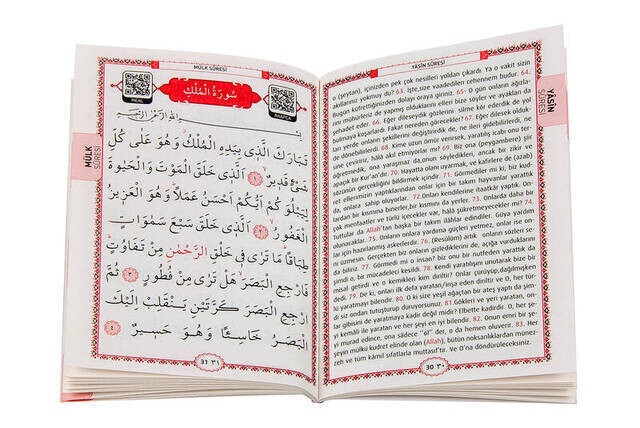 YÂSÎN SÛRESİ
o (şeytan), içinizden pek çok nesilleri yoldan çıkardı. Ya o vakit sizin
akıllarınız yokmuydu? 63. İşte,size vaadedilen cehennem budur. 64.
bugün küfrettiğinizden dolayı oraya giriniz. 65- O gün onların ağızları-
nı mühürleriz de yapmış olduklarını elleri bize söyler ve ayakları da
şehadet eder. 66. Eğer dileseydik gözlerini silme kör ederdik de yol
bulmaya koşarlardı. Fakat nereden görecekler? 67. Eğer dilesek oldukla-
rı yerde onların şekillerini değiştirirdik de, ne ileri gidebilirlerdi, ne de
geri dönebilirlerdi. 68. Kime uzun ömür verirsek, yaratılış icabı onu ter-
sine çeviririz, hâlâ akıl etmiyorlar mı? 69. Biz ona (peygambere) şiir
öğretmedik, ona yaraşmaz da,onun söyledikleri, ancak bir zikir ve
apaçık bir Kur'an'dır. 70. Hayatta olanı uyarmak, ve kafirlere de (azab)
sözünün gerçekliğini bildirmek içindir. 71. Görmediler mi ki, biz kud-
da, onlara sahip oluyorlar. 72. Onları kendilerine itaatkâr yaptık. On-
lardan bir kısmına binerler,bir kısmını da yerler. 73. Onlarda daha bir
çok menfaatler ve türlü içecekler var, hâlâ şükretmeyecekler mi? 74.
tuttular da Allah'tan başka bir takım ilâhlar edindiler. Güya yardım
olunacaklar. 75. Onların onlara yardıma güçleri yetmez, onlar ise on-
lar için hazırlanmış askerlerdir. 76. (Resülüm) artık onların sözleri se-
ni üzmesin. Gerçekten biz onların gizlediklerini de, açığa vurduklarını
da biliriz. 77. Görmedi mi o insan? biz onu bir nutfeden yarattık da
şimdi o, bir mücadeleci kesildi. 78. Kendi yaratılışını unutarak bize bir
misal getirdi ve o kemikleri kim diriltir? Onlar çürüyüp,dağılmışken
dedi. 79. De ki, onları ilk defa yaratan/inşa eden diriltir ve O, her tür-
lü yaratmayı bilendir. 80. O ki size yeşil ağaçtan bir ateş yaptı da şim-
di siz ondan tutuşturup duruyorsunuz. 81. Gökleri ve yeri yaratan, on-
lar gibisini de yaratmaya kadir değil midir? Elbette kadirdir. O, her şe-
yi kemali ile yaratan ve her şeyi en iyi bilendir. 82. Onun emri bir şe-
yi murad edince, ona sadece "ol" der, o da hemen oluverir. 83. Her
şeyin mülkü kudret elinde olan (Allah), bütün noksanlıklardan münez-
zeh ve tüm kâmil sıfatlarla muttasıf'tır. Ve O'na döndürüleceksiniz.
30 ٣٠
YÂSÎN
SÛRESİ
MÜLK SÛRESİ
MEAL
سُورَةُ الْمُلْكِ
ARAPÇA
بِسْمِ اللهِ الرَّحْمٰنِ الرَّحِيمِ
تَبَارَكَ الَّذِى بِيَدِهِ الْمُلْكُ وَهُوَ عَلٰى كُلِّ
شَىْءٍ قَدِيرٌ ﴿١﴾ اَلَّذِى خَلَقَ الْمَوْتَ وَالْحَيٰوةَ
لِيَبْلُوَكُمْ اَيُّكُمْ اَحْسَنُ عَمَلًا وَهُوَ الْعَزِيزُ
الْغَفُورُ ﴿٢﴾ اَلَّذِى خَلَقَ سَبْعَ سَمٰوَاتٍ
طِبَاقًا مَا تَرٰى فِى خَلْقِ الرَّحْمٰنِ مِنْ تَفَاوُتٍ
فَارْجِعِ الْبَصَرَ هَلْ تَرٰى مِنْ فُطُورٍ ﴿٣﴾ ثُمَّ
ارْجِعِ الْبَصَرَ كَرَّتَيْنِ يَنْقَلِبْ اِلَيْكَ
الْبَصَرُ خَاسِئًا وَهُوَ حَسِيرٌ ﴿٤﴾
31 ٣١
MÜLK
SÛRESİ